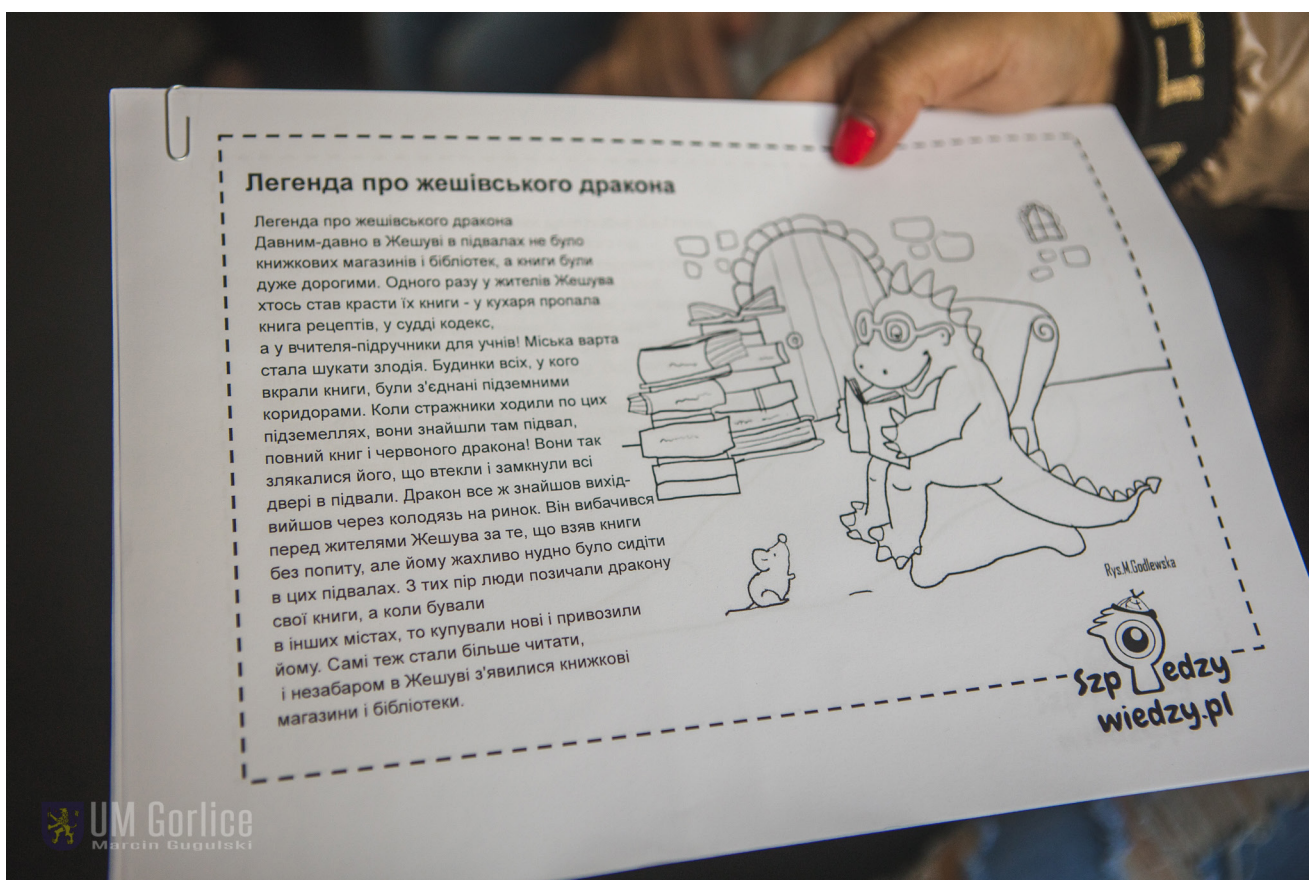 Легенда про жешівського дракона
Легенда про жешівського дракона
Давним-давно в Жешуві в підвалах не було
книжкових магазинів і бібліотек, а книги були
дуже дорогими. Одного разу у жителів Жешува
хтось став красти їх книги - у кухаря пропала
книга рецептів, у судді кодекс,
а у вчителя-підручники для учнів! Міська варта
стала шукати злодія. Будинки всіх, у кого
вкрали книги, були з'єднані підземними
коридорами. Коли стражники ходили по цих
підземеллях, вони знайшли там підвал,
повний книг і червоного дракона! Вони так
злякалися його, що втекли і замкнули всі
двері в підвали. Дракон все ж знайшов вихід-
вийшов через колодязь на ринок. Він вибачився
перед жителями Жешува за те, що взяв книги
без попиту, але йому жахливо нудно було сидіти
в цих підвалах. З тих пір люди позичали дракону
свої книги, а коли бували
в інших містах, то купували нові і привозили
йому. Самі теж стали більше читати,
і незабаром в Жешуві з'явилися книжкові
магазини і бібліотеки.
Rys.M.Godlewska
Szp edzy
wiedzy.pl
UM Gorlice
Marcin Gugulski